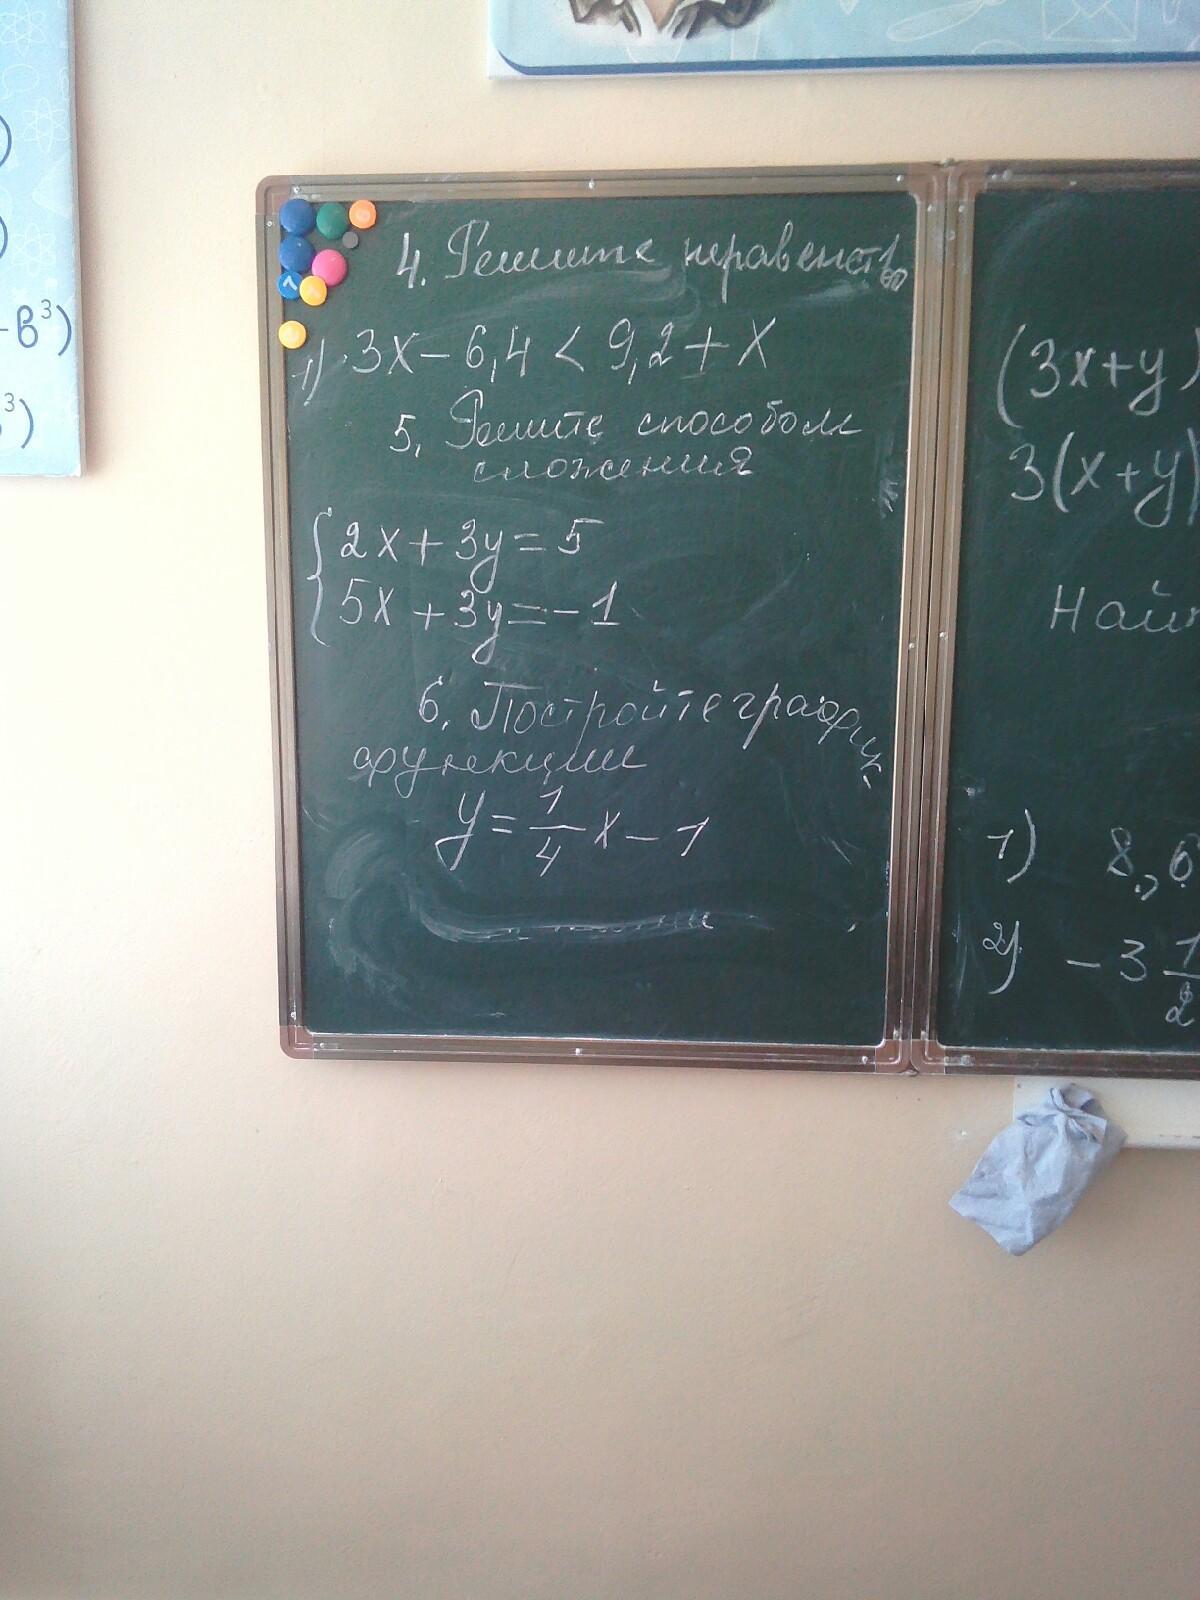 4. Решите неравенство
1) 3x - 6,4 < 9,2 + x
5. Решите способом
сложения
2x + 3y = 5
5x + 3y = -1
6. Постройте график
функции
y = 1/4 x - 1
(3x+y)
3(x+y)
Най
1) 8,6
2) -3 1/2
-в³)
³)